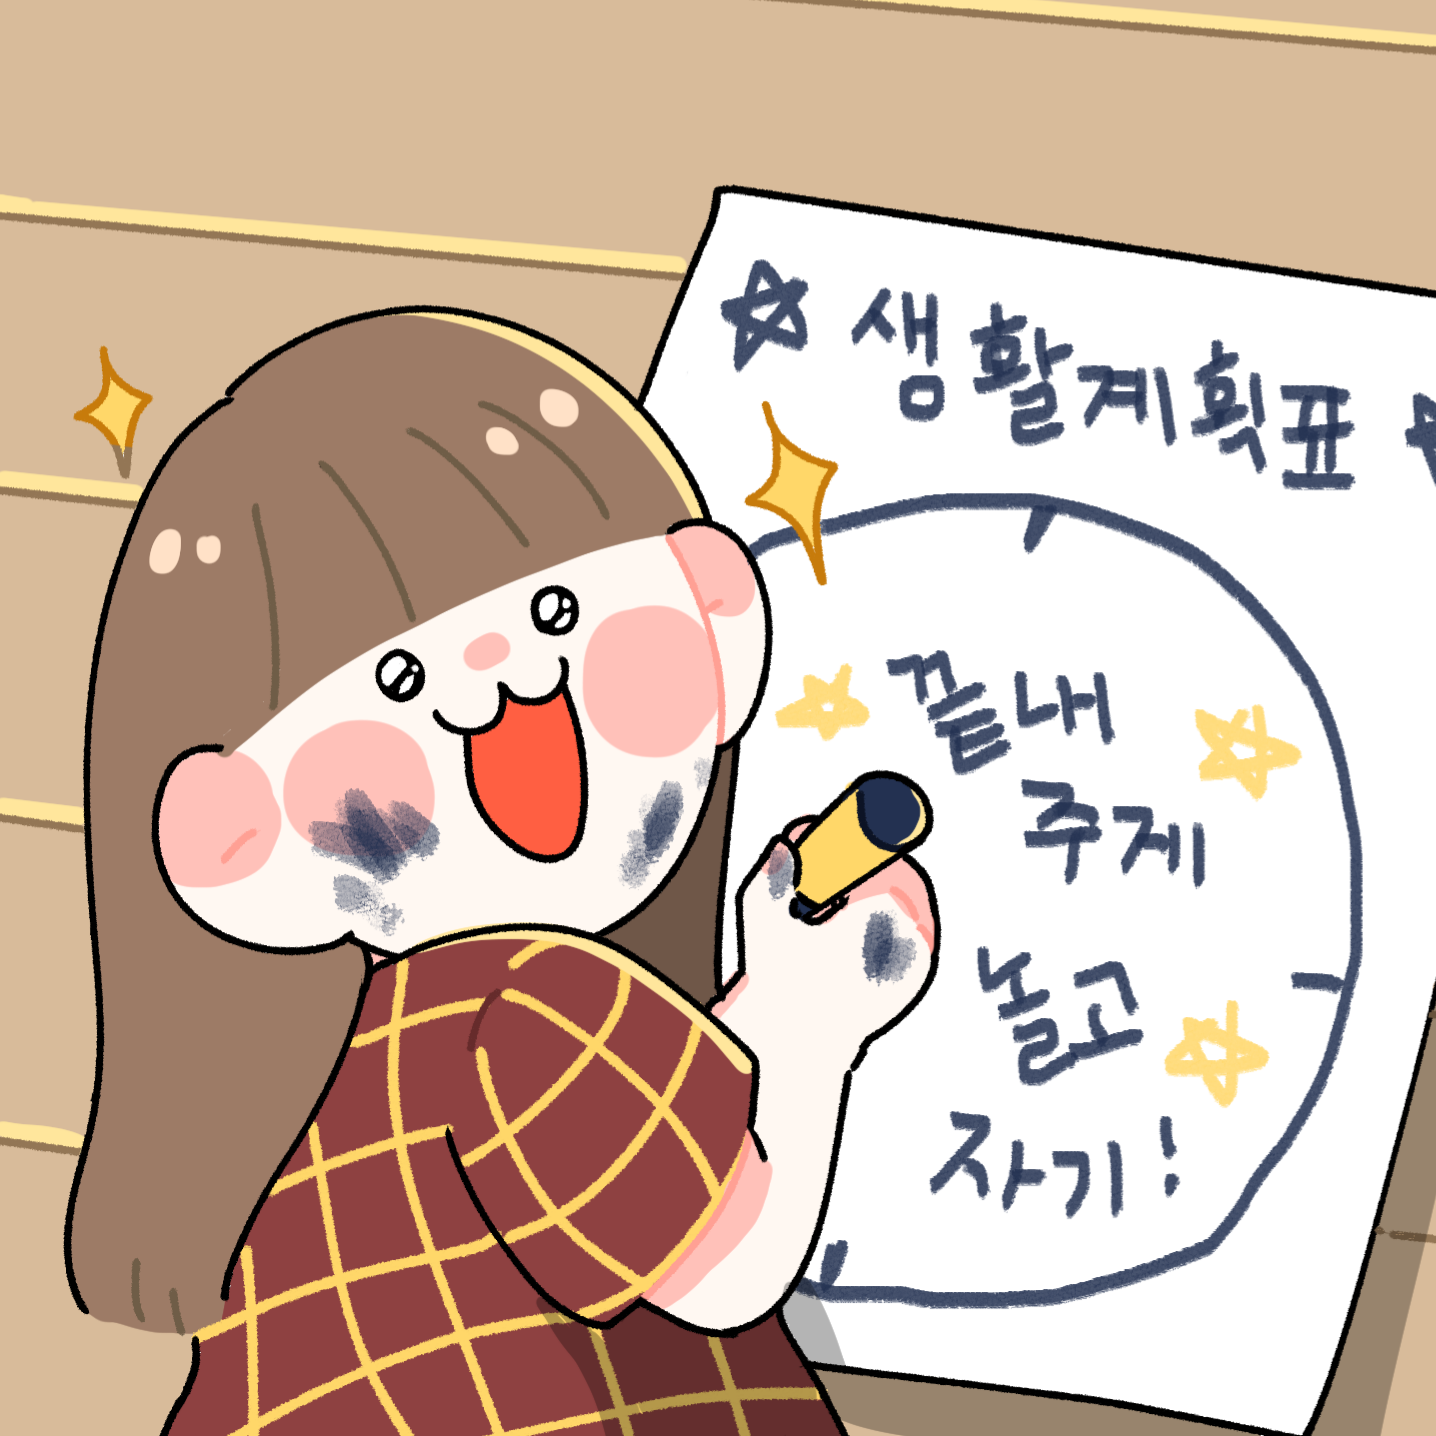 생활계획표
끝내
주제
놀고
자기!